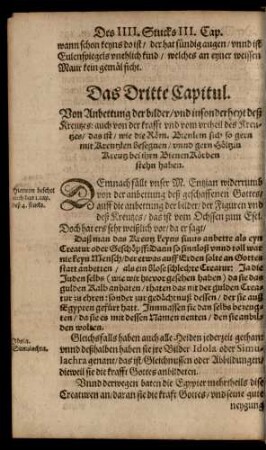 Des IIII. Stucks III. Cap.
wann schon keyns do ist / der hat sündig augen / vnnd ist
Eulenspiegels vneblich kind / welches an eyner weissen
Maur kein gemäl sicht.
Das Dritte Capitul.
Von Anbettung der bilder / vnd insonderheyt deß
Kreutzes: auch von der krafft vnd vom vrtheil des Kreu-
tzes / das ist / wie die Röm. Bienlein sich so gern
mit Kreutzlen besegnen / vnnd gern Höltzin
Kreutz bei jhren Bienen Körben
stehn haben.
Hievorn besehet
auch das 1. cap.
deß 4. Stucks.
DEmnach fällt vnser M. Gentian widerrumb
von der anbetung deß geschaffenen Gottes /
auff die anbettung der bilder / der Figuren vnd
deß Kreutzes / das ist vom Ochssen zum Esel.
Doch hat ers sehr weißlich vor / da er sagt /
Daß man das Kreutz keyns sinns anbette als eyn
Creatur oder Geschöpff: Dann so sinnloß vnnd toll war
nie keyn Mensch / der etwas auff Erden solte an Gottes
statt anbetten / als ein Blose schlechte Creatur: Ja die
Juden selbs (wie wir hievor gesehen haben) da sie das
Gulden Calb anbetteten / thaten das nit der gulden Crea-
tur zu ehren: sonder zur gedächtnuß dessen / der sie auß
Egypten geführt hatt. Innmassen sie dan selbs bezeug-
ten / da sie es mit dessen Namen nenten / den sie anbil-
den wolten.
Idola.
Simulachra.
Gleichsfalls haben auch alle Heiden jederzeit gethan
vnnd deßhalben haben sie jre Bilder Idola oder Simu-
lachra genant / das ist Gleichnussen oder Abbildungen /
dieweil sie die krafft Gottes anbildeten.
Vnnd derwegen baten die Egypter mehrtheils dise
Creaturen an / daran sie die kraft Gottes / vnd seine gute
neygung